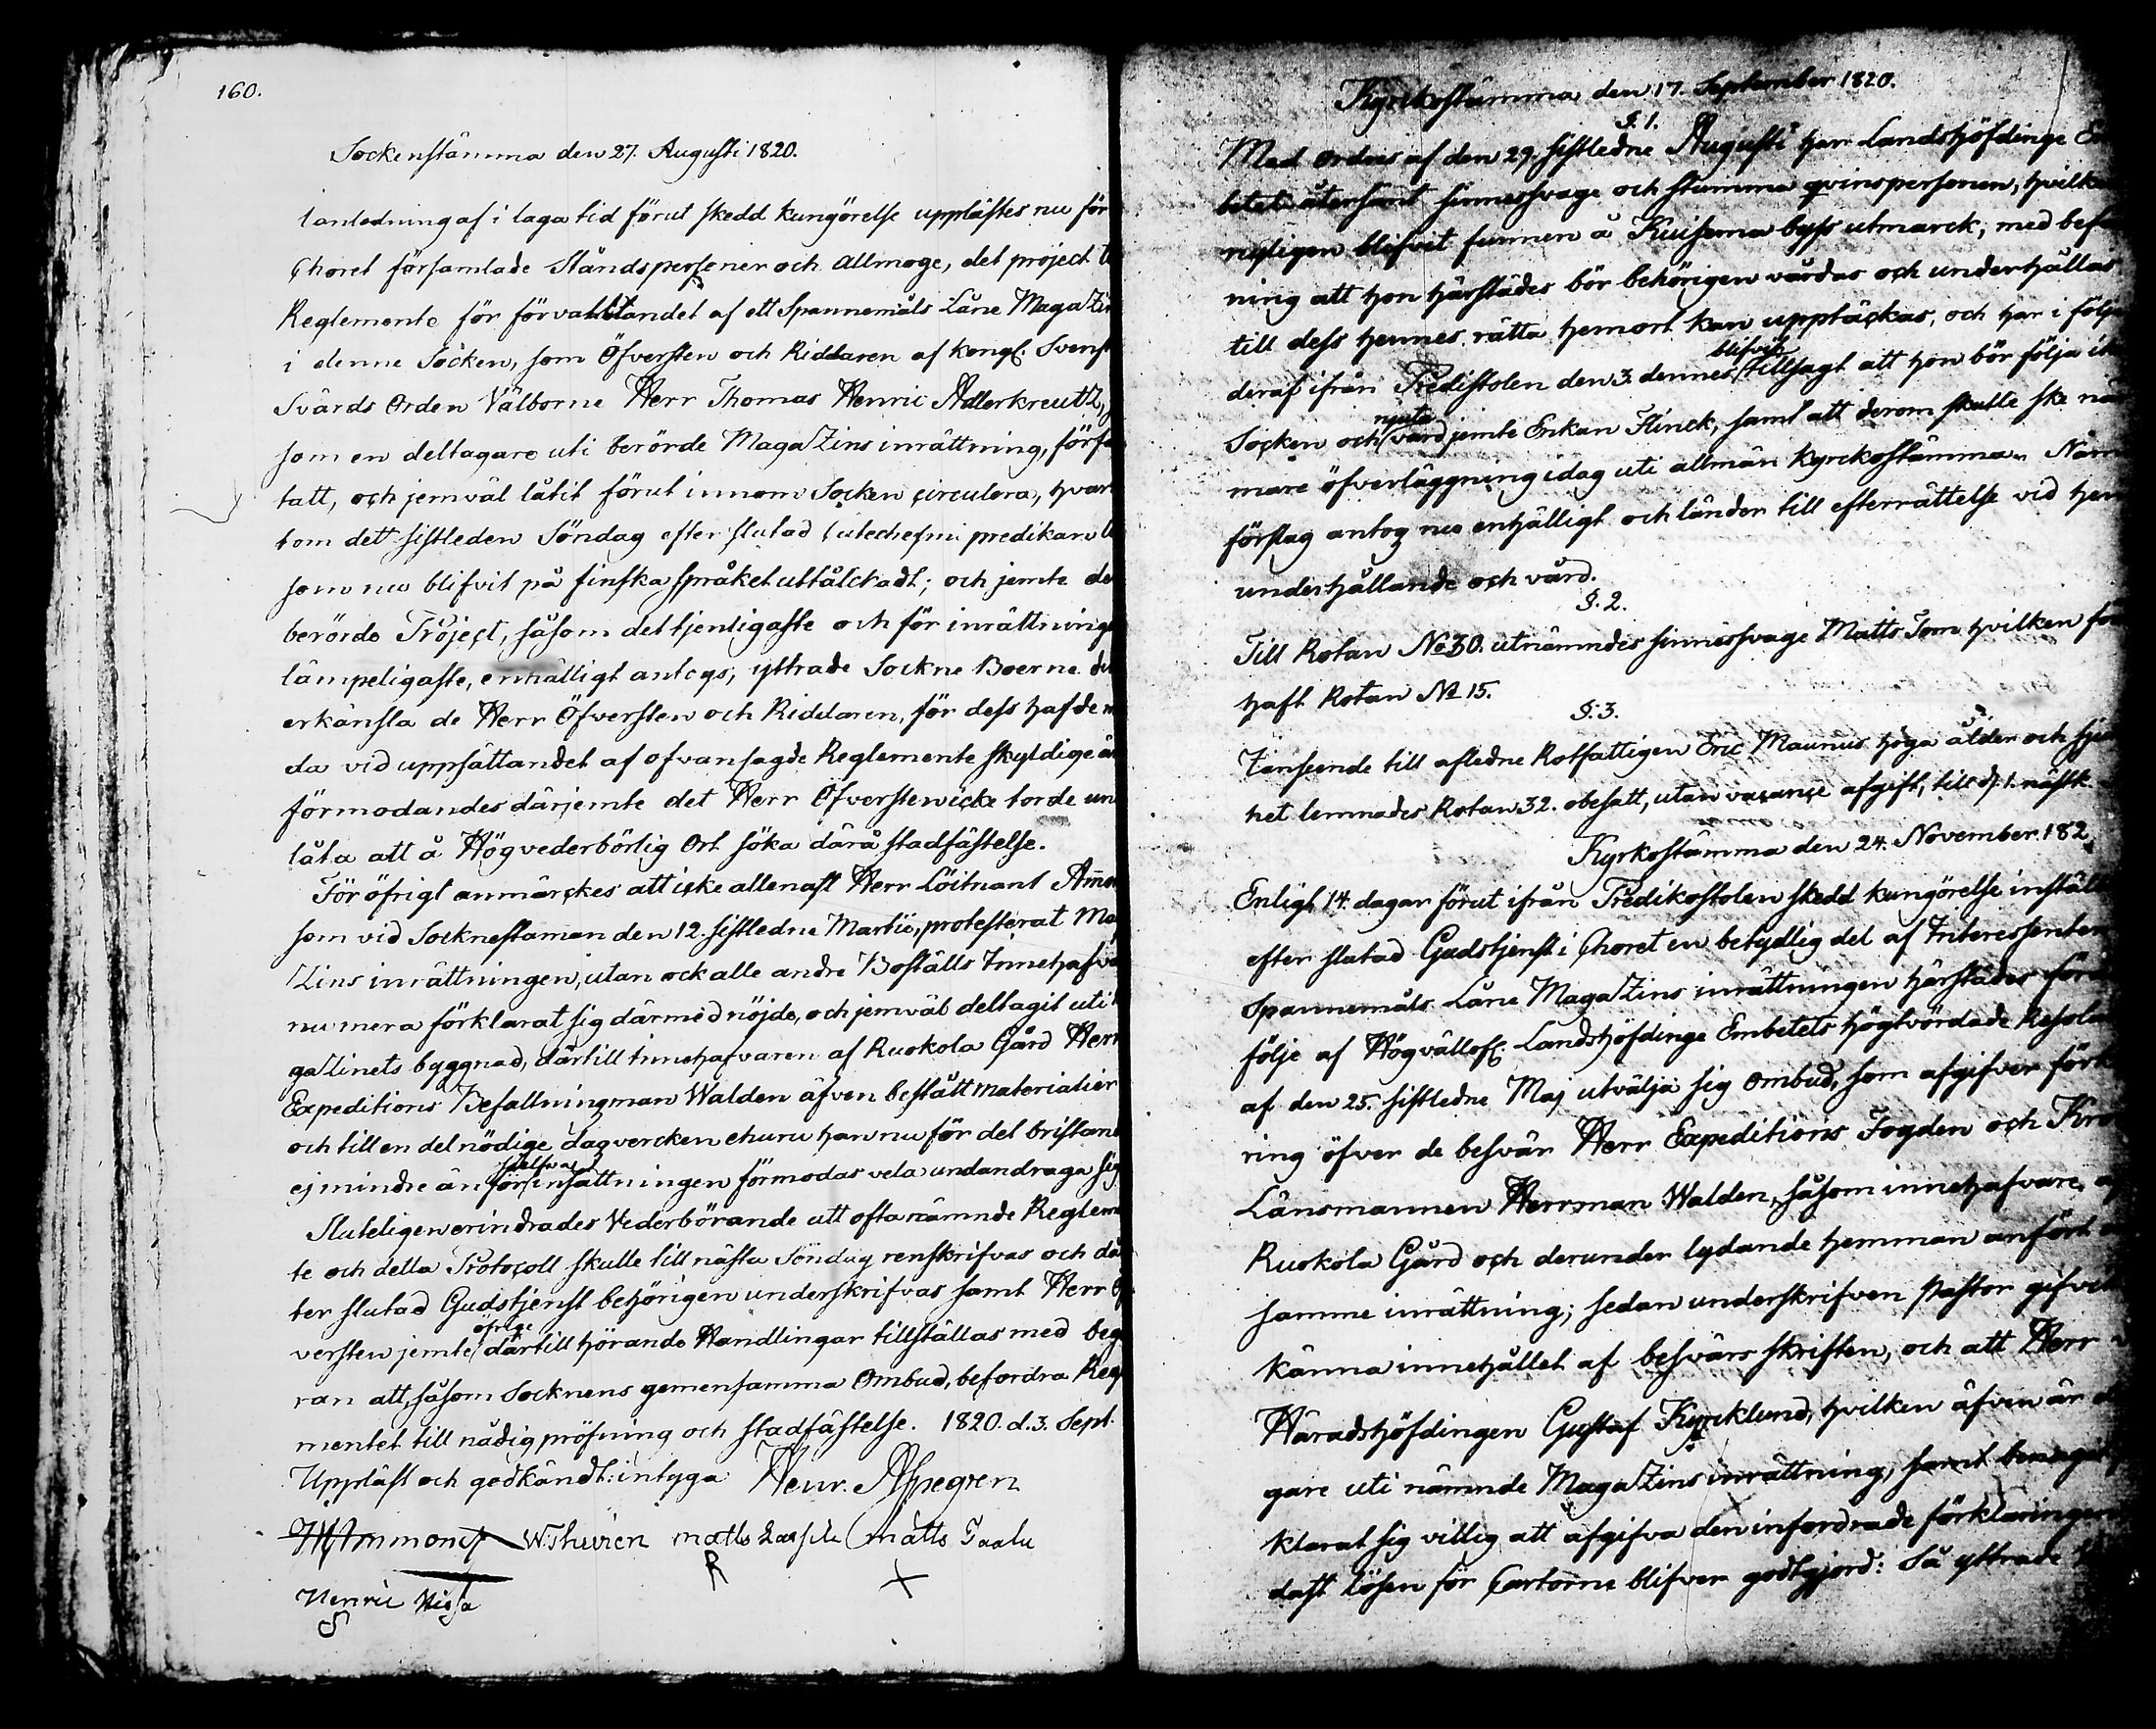 160.
Sockenstämma den 27. Augusti 1820.
I anledning af i laga tid förut skedd kungörelse upplästes nu för
Choret församlade Ståndspersoner och Allmoge, det project
Reglemente för förvaltandet af ett Spannemåls Låne Magazin
i denne Socken, som Öfversten och Riddaren af kongl. Svenska
Svärds Orden Välborne Herr Thomas Henric Adlerkreutz,
som en deltagare uti berörde Magazins inrättning, förfa
tatt, och jemväl låtit förut innom Socken circulera, hvar
tom dett sistleden Söndag efter slutad Catechesmi predikan
som nu blifvit på finska språket uttålckadt; och jemte de
berörde Project, såsom det tjenligaste och för inrättninge
lämpeligaste, enhälligt antogs, yttrade Sockne Boerne den
erkänsla de Herr Öfversten och Riddaren, för dess hafde m
da vid uppsättandet af ofvansagde Reglemente skyldige ä
förmodandes därjemte det Herr Öfversten icke torde un
låta att å Högvederbörlig Ort söka därå stadfästelse.
För öfrigt anmärckes att icke allenast Herr Löitnant Ammon
som vid Socknestäman den 12. sistledne Martii, protesterat Ma
Zins inrättningen, utan ock alle andre Boställs Innehafva
nu mera förklarat sig därmed nöjde, och jemväl deltagit uti
gaZinets byggnad, därtill innehafvaren af Ruokola Gård Herr
Expeditions Befallningman Walden äfven bestått materialier
och till en del nödige dagvercken ehuru han nu för det bristan
sjelfva
ej mindre än för insättningen förmodas vela undandraga sig
Sluteligen erindrades Vederbörande att oftanämnde Reglem
te och detta Protocoll skulle till nästa Söndag renskrifvas och då
ter slutad Gudstjenst behörigen underskrifvas samt Herr Öf
öfrige
versten jemte därtill hörande Handlingar tillställas med beg
ran att, såsom Socknens gemensamma Ombud, befordra Reg
mentet till nådig pröfning och stadfästelse. 1820. d. 3. Sept.
Uppläst och godkändt: intyga Henr. Aspegren
Ammondt W. Thuvien matts matts
R +
Henric
S
Kyrckostämma den 17. September 1820.
§. 1.
Med ordres af den 29. sistledne Augusti har Landshöfdinge Em
betet återsänt sinnessvage och stumma qvinspersonen, hvilken
nyligen blifvit funnen å Kuisema byss utmarck, med bef
ning att hon härstädes bör behörigen vårdas och underhållas
till dess hennes rätta hemort kan upptäckas, och har i följe
blifvit
deraf ifrån Predistolen den 3. dennes tillsagt att hon bör följa i
njuta
Socken och vård jemte Enkan Flinck, samt att derom skulle ske nä
mare öfverläggning idag uti allmän kyrckostämma. Näm
förslag antog nu enhälligt och länder till efterrättelse vid hen
underhållande och vård.
§. 2.
Till Rotan No 30. utnämndes sinnessvage Matts Tom hvilken för
haft Rotan No 15.
§. 3.
I anseende till afledne Rotfattigen Eric Maunus höga ålder och sju
het lemnades Rotan 32. obesatt, utan vacance afgift, till d. 1. nästk.
Kyrkostämma den 24. November 182
Enligt 14. dagar förut ifrån Predikostolen skedd kungörelse inställ
efter slutad Gudstjenst i Choret en betydlig del af Interessenter
Spannemåls Låne Magazins inrättningen härstädes för
följe af Högvällofl. Landshöfdinge Embetets högtvördade Resolu
af den 25. sistledne Maj utvälja sig Ombud, som afgifver förk
ring öfver de besvär Herr Expeditions Fogden och Kro
Länsmannen Herrman Walden, såsom innehafvare, af
Ruokola Gård och derunder lydande hemman anfört
samme inrättning; sedan underskrifven Pastor gifvit
känna innehållet af besvärs skriften, och att Herr
Häradshöfdingen Gustaf Kyrcklund, hvilken äfven är d
gare uti nämnde Magazins inrättning, samt benäget
klarat sig villig att afgifva den infordrade förklaringen
dast lösen för Cartorne blifver godtgjord: Så yttrade